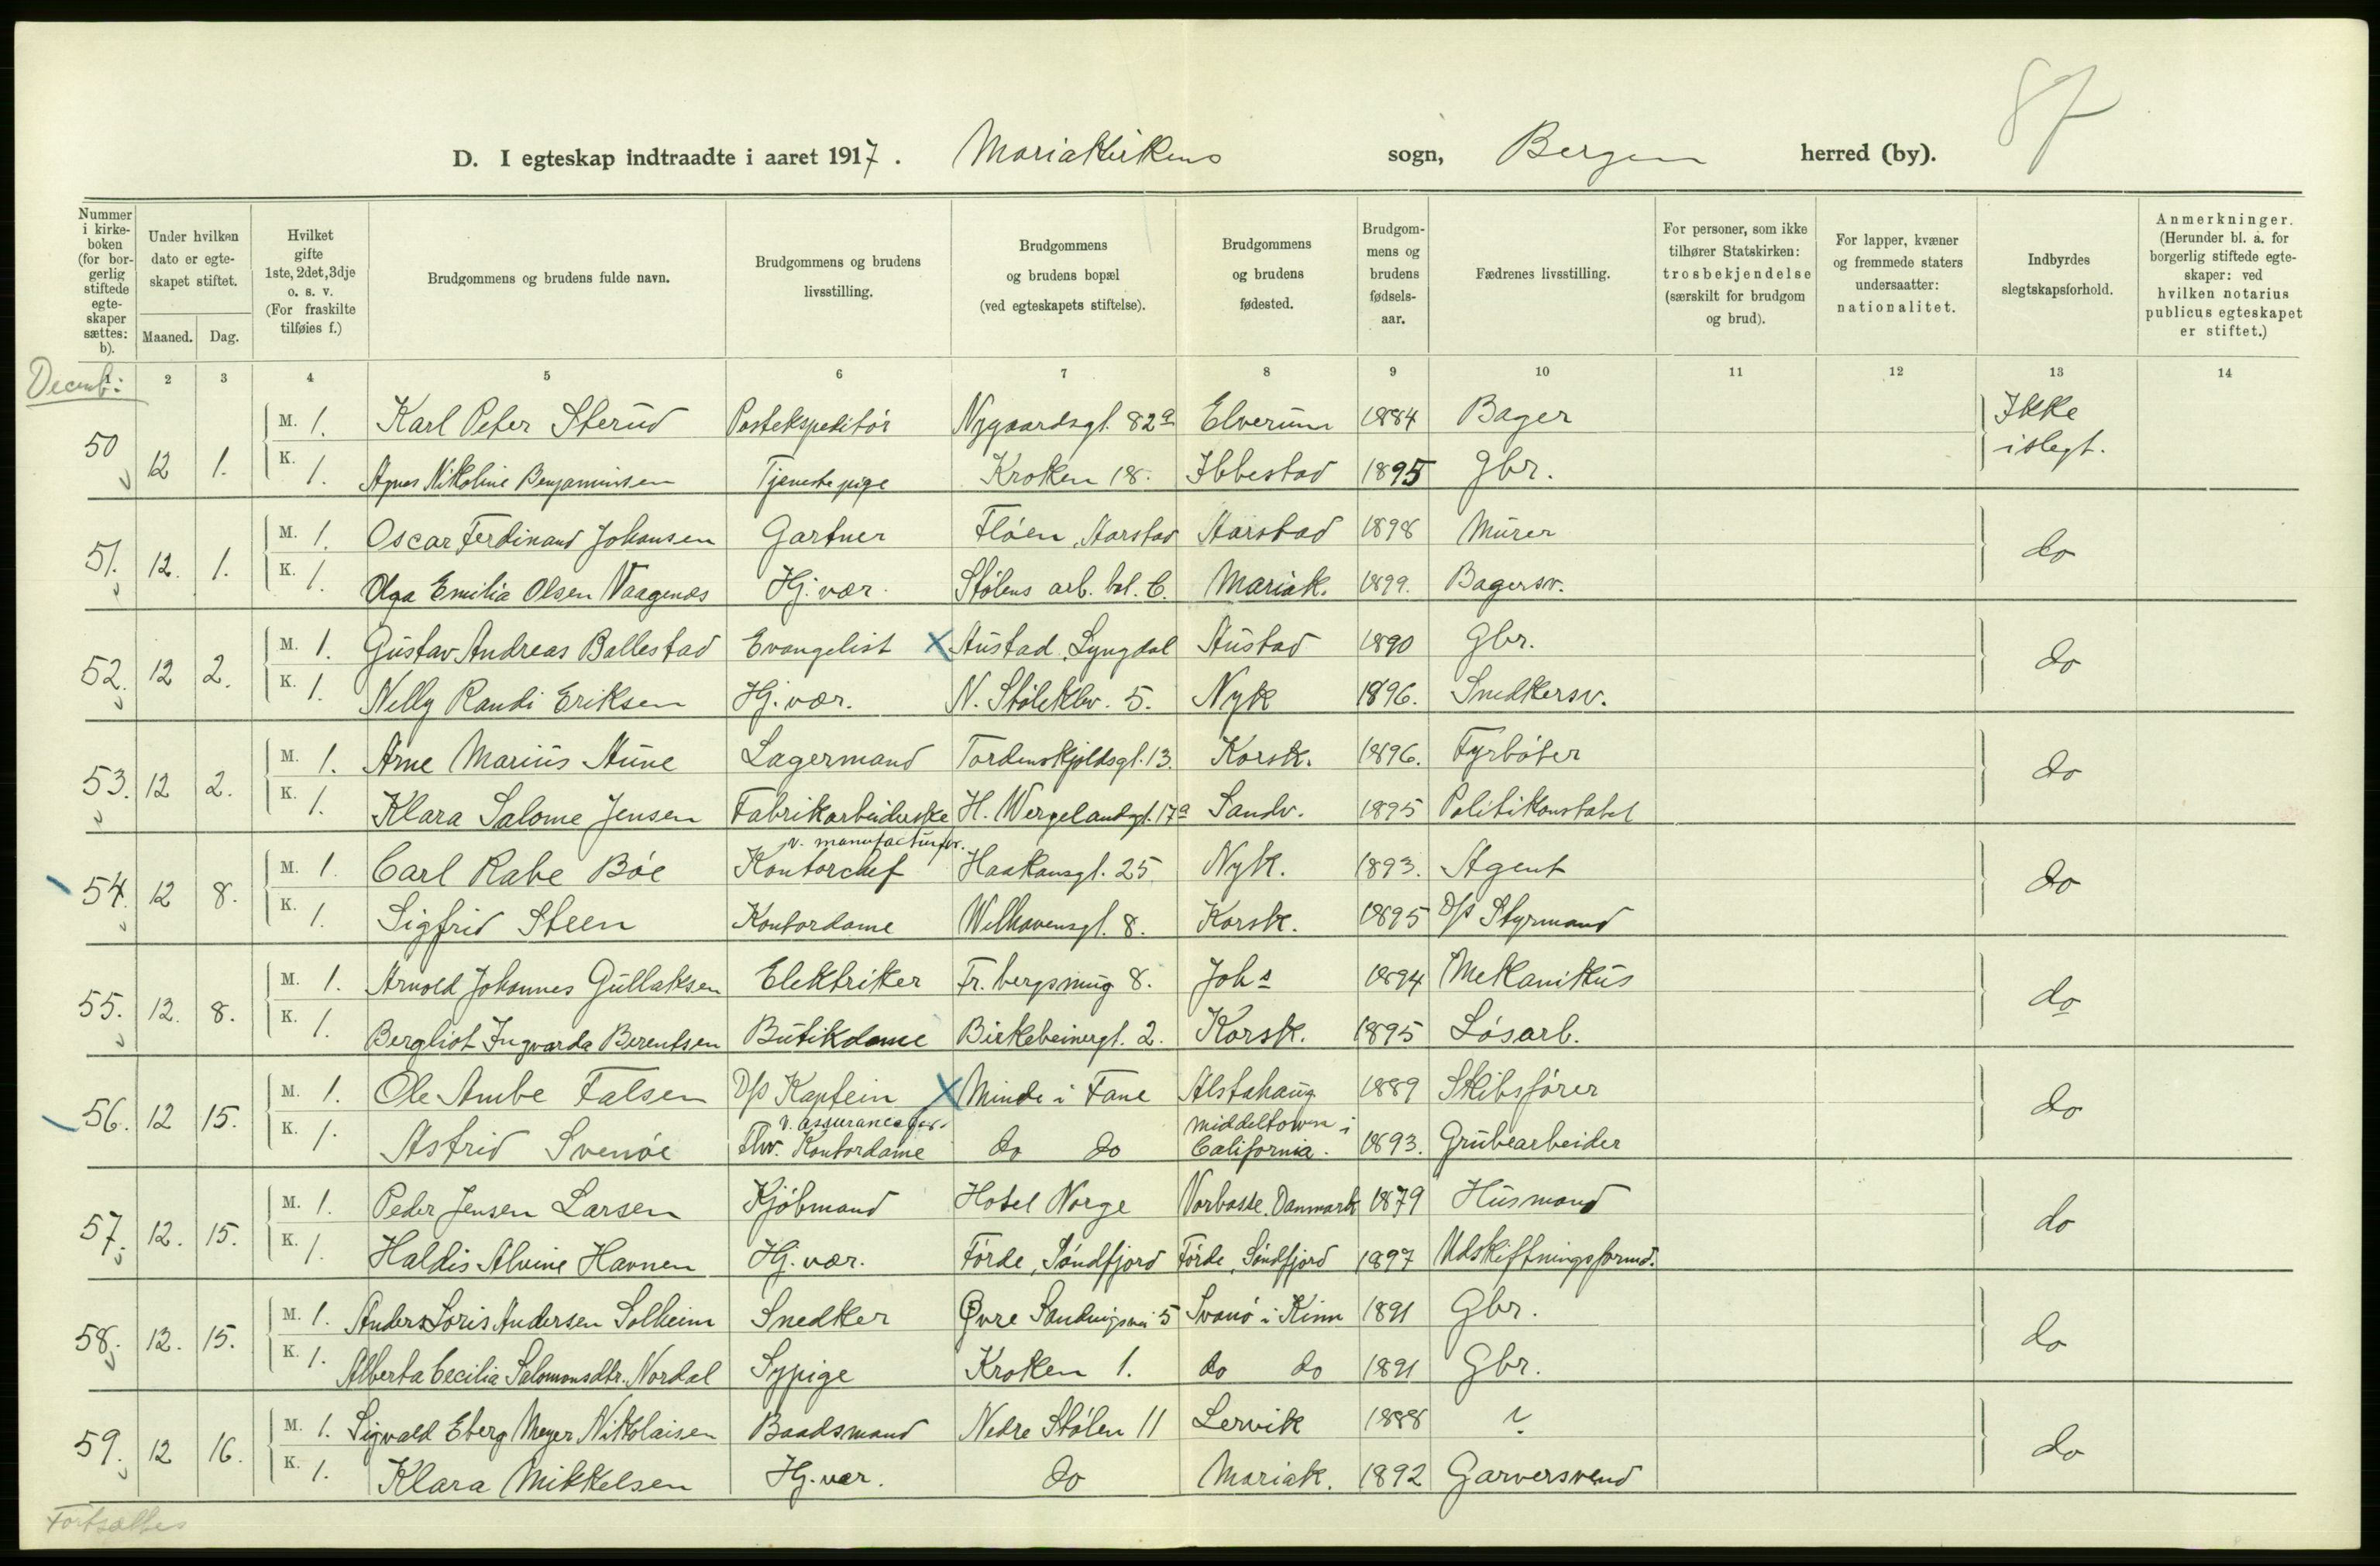 87
D. I egteskap indtraadte i aaret 1917. Mariakirkens sogn, Bergen herred (by).
Nummer i kirkeboken (for borgerlig stiftede egteskaper sættes: b). | Under hvilken dato er egteskapet stiftet. Maaned. Dag. | Hvilket gifte 1ste, 2det, 3dje o. s. v. (For fraskilte tilføies f.) | Brudgommens og brudens fulde navn. | Brudgommens og brudens livsstilling. | Brudgommens og brudens bopæl (ved egteskapets stiftelse). | Brudgommens og brudens fødested. | Brudgommens og brudens fødselsaar. | Fædrenes livsstilling. | For personer, som ikke tilhører Statskirken: trosbekjendelse (særskilt for brudgom og brud). | For lapper, kvæner og fremmede staters undersaatter: nationalitet. | Indbyrdes slegtskapsforhold. | Anmerkninger. (Herunder bl. a. for borgerlig stiftede egteskaper: ved hvilken notarius publicus egteskapet er stiftet.)
1 2 3 4 5 6 7 8 9 10 11 12 13 14
Decemb:
50 12 1. M. 1. Karl Peter Sterud Postekspeditör Nygaardsgt. 82a Elverum 1884 Bager Ikke i slegt.
K. 1. Agnes Nikoline Benjaminsen Tjenestepige Kroken 18. Ibbestad 1895 Gbr.
51. 12. 1. M. 1. Oscar Ferdinand Johansen Gartner Flöen, Aarstad Aarstad 1898 Murer do
K. 1. Olga Emilia Olsen Vaagenæs Hj. vær. Stölens arb. bol. C. Mariak. 1899. Bagersv.
52. 12 2. M. 1. Gustav Andreas Ballestad Evangelist X Austad, Lyngdal Austad 1890 Gbr. do
K. 1. Nelly Randi Eriksen Hj. vær. N. Stöleklv. 5. Nyk 1896. Snedkersv.
53. 12 2. M. 1. Arne Marius Aune Lagermand Tordenskjoldsgt. 13. Korsk. 1896. Fyrböter do
K. 1. Klara Salome Jensen Fabrikarbeiderske H. Wergelandsgt. 17a Sandv. 1895 Politikonstabel
v. manufacturfor.
54. 12 8. M. 1. Carl Rabe Böe Kontorchef Haakonsgt. 25 Nyk. 1893. Agent do
K. 1. Sigfrid Steen Kontordame Welhavensgt. 8. Korsk. 1895 D/s Styrmand
55. 12. 8. M. 1. Arnold Johannes Gullaksen Elektriker Fr. bergsmug 8. Johs 1894 Mekanikus do
K. 1. Bergliot Ingvarda Berentsen Butikdame Birkebeinergt. 2. Korsk. 1895 Lösarb.
56. 12 15. M. 1. Ole Ambe Falsen D/s Kaptein X Minde i Fane Alstahaug 1889 Skibsförer do
v. assurancefor. Middeltown i
K. 1. Astrid Svenöe Fhv. Kontordame do do California. 1893. Grubearbeider
57. 12. 15. M. 1. Peder Jensen Larsen Kjöbmand Hotel Norge Vorbasse. Danmark 1879 Husmand do
K. 1. Haldis Alvine Havnen Hj. vær. Förde, Söndfjord Förde, Söndfjord 1897 Udskiftningsformd.
58. 12. 15. M. 1. Anders Loris Andersen Solheim Snedker Øvre Sandvigsvei 5 Svanö i Kinn 1891 Gbr. do
K. 1. Alberta Cecilia Salomonsdtr. Nordal Sypige Kroken 1. do do 1891 Gbr.
59. 12 16. M. 1. Sigvald Eberg Meyer Nikolaisen Baadsmand Nedre Stölen 11 Lervik 1888 ? do
K. 1. Klara Mikkelsen Hj. vær. do Mariak. 1892 Garversvend
Fortsættes